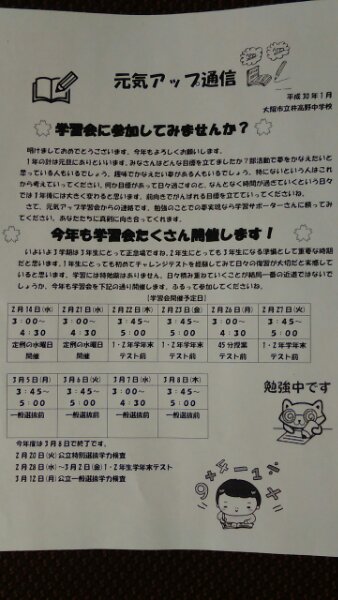 元気アップ通信
平成30年1月
大阪市立井高野中学校
学習会に参加してみませんか?
明けましておめでとうございます。今年もよろしくお願いします。
1年の計は元旦にありといいます。みなさんはどんな目標を立てましたか?部活動で夢をかなえたいと
思っている人もいるでしょう。趣味でかなえたい夢がある人もいるでしょう。特にないというんはこれ
から考えていってください。何か目標があって日々過ごすのと、なんとなく時間が過ぎていくという日々
では1年後には大きく変わると思います。前向きでがんばれる目標を立てていってくださいね。
さて、元気アップ学習会からの連絡です。勉強のことでの夢実現なら学習サポーターさんに頼ってみ
てください。あなたたちに真剣に向き合ってくれます。
今年も学習会たくさん開催します!
いよいよ3学期は3年生にとって正念場ですね。2年生にとっても3年生になる準備として重要な時期
だと思います。1年生にとっても初めてチャレンジテストを経験してみて日々の復習が大切だと実感して
いると思います。学習には特効薬はありません。日々積み重ねていくことが結局一番の近道ではないで
しょうか。今年も学習会を下記の通り開催します。ふるって参加してくださいね。
【学習会開催予定日】
2月14日(水) 2月21日(水) 2月22日(木) 2月23日(金) 2月26日(月) 2月27日(火)
3:00~ 3:00~ 3:45~ 3:45~ 3:00~ 3:45~
4:30 4:30 5:00 5:00 4:30 5:00
定例の水曜日 定例の水曜日 1・2年学年末 1・2年生テスト 45分授業 1・2年生テスト
開催 開催 テスト前 前 テスト前 前
3月5日(月) 3月6日(火) 3月7日(水) 3月8日(木)
3:45~ 3:45~ 3:00~ 3:45~
5:00 5:00 4:30 5:00
一般選抜前 一般選抜前 一般選抜前 一般選抜前
勉強中です
今年度は3月8日で終了です。
2月20日(火)公立特別選抜学力検査
2月28日(水)~3月2日(金)1・2年生学年末テスト
3月12日(月)公立一般選抜学力検査